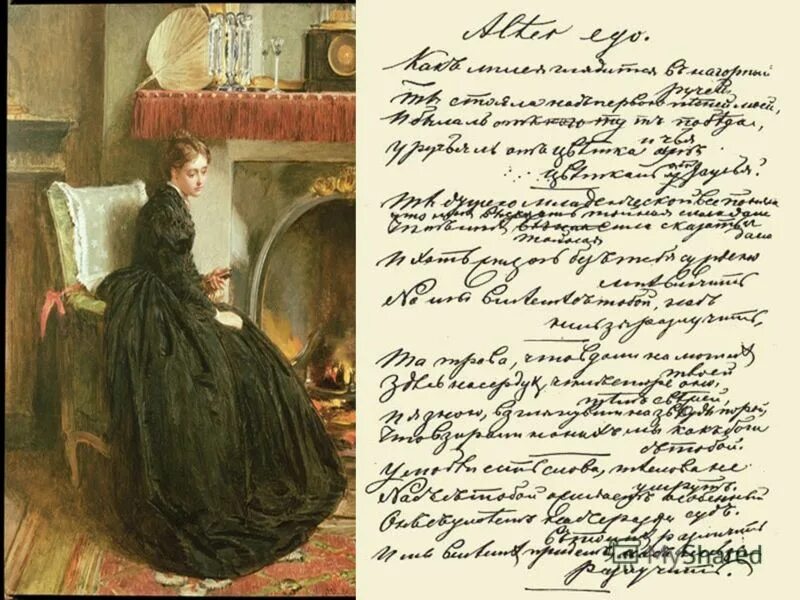 Alter ego.
Какъ лилея глядится въ нагорный
ручей
Ты стояла надъ первою пѣсней моей,
И была ль при этомъ побѣда,
и чья
У ручья ль отъ цвѣтка
цвѣтка ль ручья?
Ты душою младенческой все поняла
что мнѣ высказать тайная сила дала
И хоть жизнь безъ тебя суждено
мнѣ влачить
Но мы вмѣстѣ съ тобой, насъ
нельзя разлучить.
Та трава, что вдали на могилѣ
твоей
Здѣсь на сердцѣ, чѣмъ старе оно,
тѣмъ свѣжей,
И я знаю, взглянувши на звѣзды порой,
Что взирали на нихъ мы какъ боги
съ тобой.
У любви есть слова, тѣ слова не
умрутъ.
Насъ съ тобой ожидаетъ особенный
судъ.
Онъ съумѣетъ насъ
различить
И мы вмѣстѣ придемъ
разлучить!
MyShared